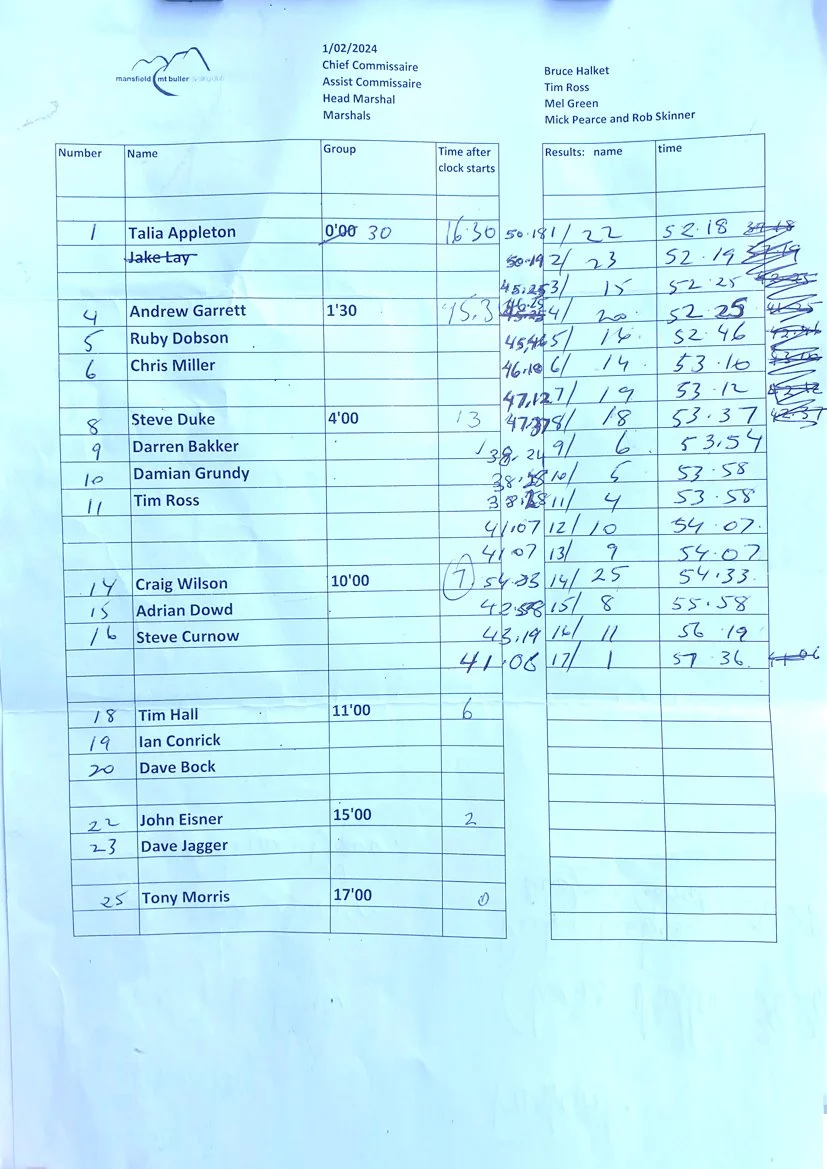 mansfield mt buller
1/02/2024
Chief Commissaire Bruce Halket
Assist Commissaire Tim Ross
Head Marshal Mel Green
Marshals Mick Pearce and Rob Skinner
Number Name Group Time after clock starts Results: name time
1 Talia Appleton 0'00 30 16.30 50.18 1/ 22 52.18
Jake Lay 50.19 2/ 23 52.19
45.25 3/ 15 52.25
4 Andrew Garrett 1'30 15.3 46.25 4/ 20 52.25
5 Ruby Dobson 45.46 5/ 16 52.46
6 Chris Miller 46.10 6/ 14 53.10
47.12 7/ 19 53.12
8 Steve Duke 4'00 13 47.37 8/ 18 53.37
9 Darren Bakker 38.24 9/ 6 53.54
10 Damian Grundy 38.28 10/ 5 53.58
11 Tim Ross 38.28 11/ 4 53.58
41.07 12/ 10 54.07.
41.07 13/ 9 54.07
14 Craig Wilson 10'00 7 54.33 14/ 25 54.33.
15 Adrian Dowd 42.58 15/ 8 55.58
16 Steve Curnow 43.19 16/ 11 56.19
41.06 17/ 1 57.36.
18 Tim Hall 11'00 6
19 Ian Conrick
20 Dave Bock
22 John Eisner 15'00 2
23 Dave Jagger
25 Tony Morris 17'00 0